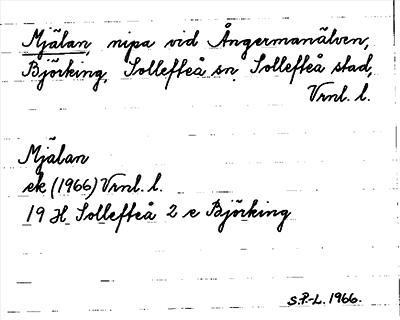 Mjälan, nipa vid Ångermanälven,
Björking, Sollefteå sn. Sollefteå stad,
Vrnl. l.
Mjälan
ek (1966) Vrnl. l.
19 H Sollefteå 2 e Björking
S.P-L. 1966.